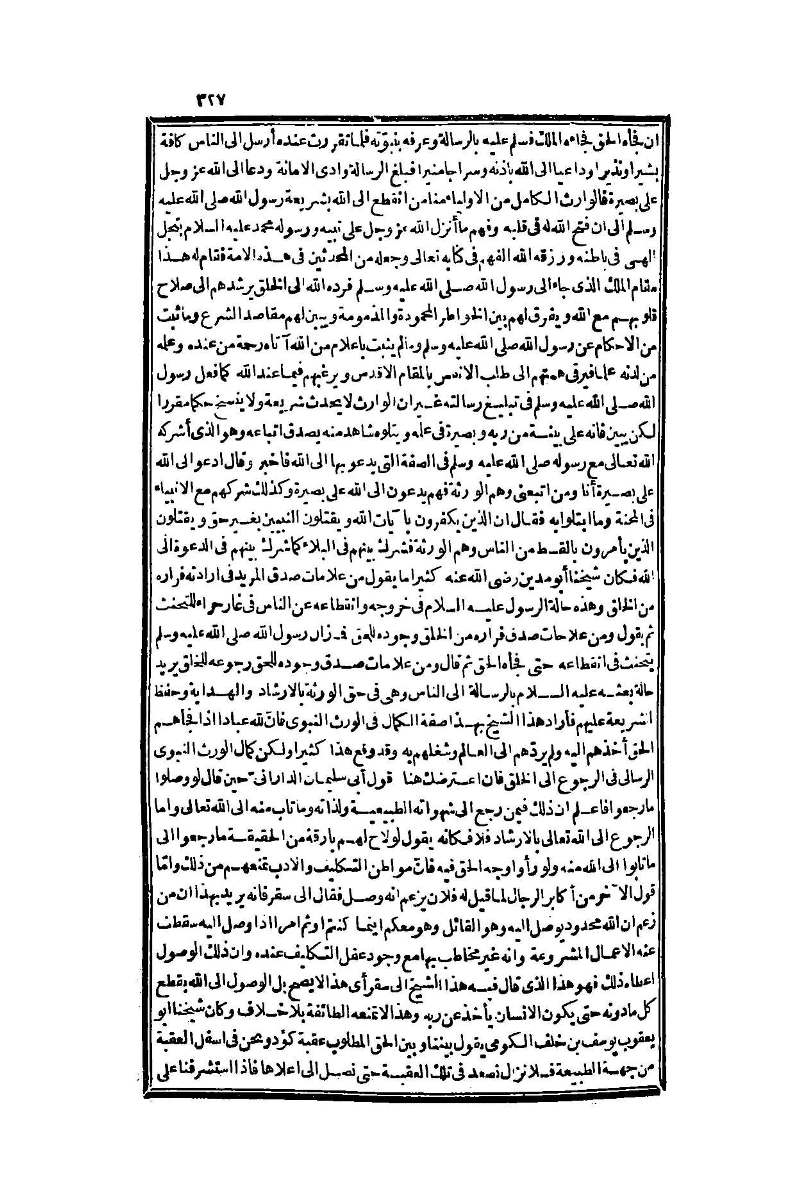 ٣٢٧
ان فجأه الحق فجاءه الملك فسلم عليه بالرسالة وعرفه بنبوّته فلما تقررت عنده أرسل الى الناس كافة
بشيرا ونذيرا وداعيا الى الله باذنه وسراجا منيرا فبلغ الرسالة وادى الامانة ودعا الى الله عز وجل
على بصيرة فالوارث الكامل من الاولياء منا من انقطع الى الله بشريعة رسول الله صلى الله عليه
وسلم الى ان فتح الله له فى قلبه وفهم ما أنزل الله عز وجل على نبيه ورسوله محمد عليه السلام بتجل
الهى فى باطنه ورزقه الله الفهم فى كتابه تعالى وجعله من المحدثين فى هذه الامة فقام له هذا
مقام الملك الذى جاء الى رسول الله صلى الله عليه وسلم فرده الله الى الخلق يرشدهم الى صلاح
قلوبهم مع الله ويفرق لهم بين الخواطر المحمودة والمذمومة ويبين لهم مقاصد الشرع وما ثبت
من الاحكام عن رسول الله صلى الله عليه وسلم وما لم يثبت باعلام من الله آتاه رحمة من عنده وعلمه
من لدنه علما فيرقى هممهم الى طلب الانفس بالمقام الاقدس ويرغبهم فيما عند الله كما فعل رسول
الله صلى الله عليه وسلم فى تبليغ رسالته غير ان الوارث لا يحدث شريعة ولا ينسخ حكما مقررا
لكن يبين فانه على بينة من ربه وبصيرة فى علمه ويتلوه شاهد منه يصدق اتباعه وهو الذى أشركه
الله تعالى مع رسوله صلى الله عليه وسلم فى الصفة التى يدعو بها الى الله فاخبر وقال ادعو الى الله
على بصيرة أنا ومن اتبعنى وهم الورثة فهم يدعون الى الله على بصيرة وكذلك شركهم مع الانبياء
فى المحنة وما ابتلوا به فقال ان الذين يكفرون بآيات الله ويقتلون النبيين بغير حق ويقتلون
الذين يأمرون بالقسط من الناس وهم الورثة فشرك بينهم فى البلاء كما شرك بينهم فى الدعوة الى
الله فكان شيخنا أبو مدين رضى الله عنه كثيرا ما يقول من علامات صدق المريد فى ارادته فراره
من الخلق وهذه حالة الرسول عليه السلام فى خروجه وانقطاعه عن الناس فى غار حراء للتحنث
ثم يقول ومن علامات صدق فراره من الخلق وجوده للحق فما زال رسول الله صلى الله عليه وسلم
يتحنث فى انقطاعه حتى فجأه الحق ثم قال ومن علامات صدق وجوده للحق رجوعه للخلق يريد
حالة بعثه عليه السلام بالرسالة الى الناس وهى فى حق الورثة بالارشاد والهداية وحفظ
الشريعة عليهم فأراد هذا الشيخ بهذا صفة الكمال فى الورث النبوى فان لله عبادا اذا فجأهم
الحق أخذهم اليه ولم يردّهم الى العالم وشغلهم به وقد وقع هذا كثيرا ولكن كمال الورث النبوى
الرسالى فى الرجوع الى الخلق فان اعترضك هنا قول أبى سليمان الدارانى حين قال لو وصلوا
ما رجعوا فاعلم ان ذلك فيمن رجع الى شهواته الطبيعية ولذاته وما تاب منه الى الله تعالى واما
الرجوع الى الله تعالى بالارشاد فلا فكانه يقول لو لاح لهم بارقة من الحقيقة ما رجعوا الى
ما تابوا الى الله منه ولو رأوا وجه الحق فيه فان مواطن التكليف والادب تمنعهم من ذلك وامّا
قول الآخر من أكابر الرجال لما قيل له فلان يزعم انه وصل فقال الى سقر فانه يريد بهذا ان من
زعم ان الله محدود يوصل اليه وهو القائل وهو معكم اينما كنتم او ثم امر اذا وصل اليه سقطت
عنه الاعمال المشروعة وانه غير مخاطب بها مع وجود عقل التكليف عنده وان ذلك الوصول
اعطاه ذلك فهو هذا الذى قال فيه هذا الشيخ الى سقر أى هذا لا يصح بل الوصول الى الله بقطع
كل ما دونه حتى يكون الانسان يأخذ عن ربه وهذا لا تمنعه الطائفة بلا خلاف وكان شيخنا ابو
يعقوب يوسف بن خلف الكومى يقول بيننا وبين الحق المطلوب عقبة كؤد ونحن فى اسفل العقبة
من جهة الطبيعة فلا نزال نصعد فى تلك العقبة حتى نصل الى اعلاها فاذا استشرفنا على